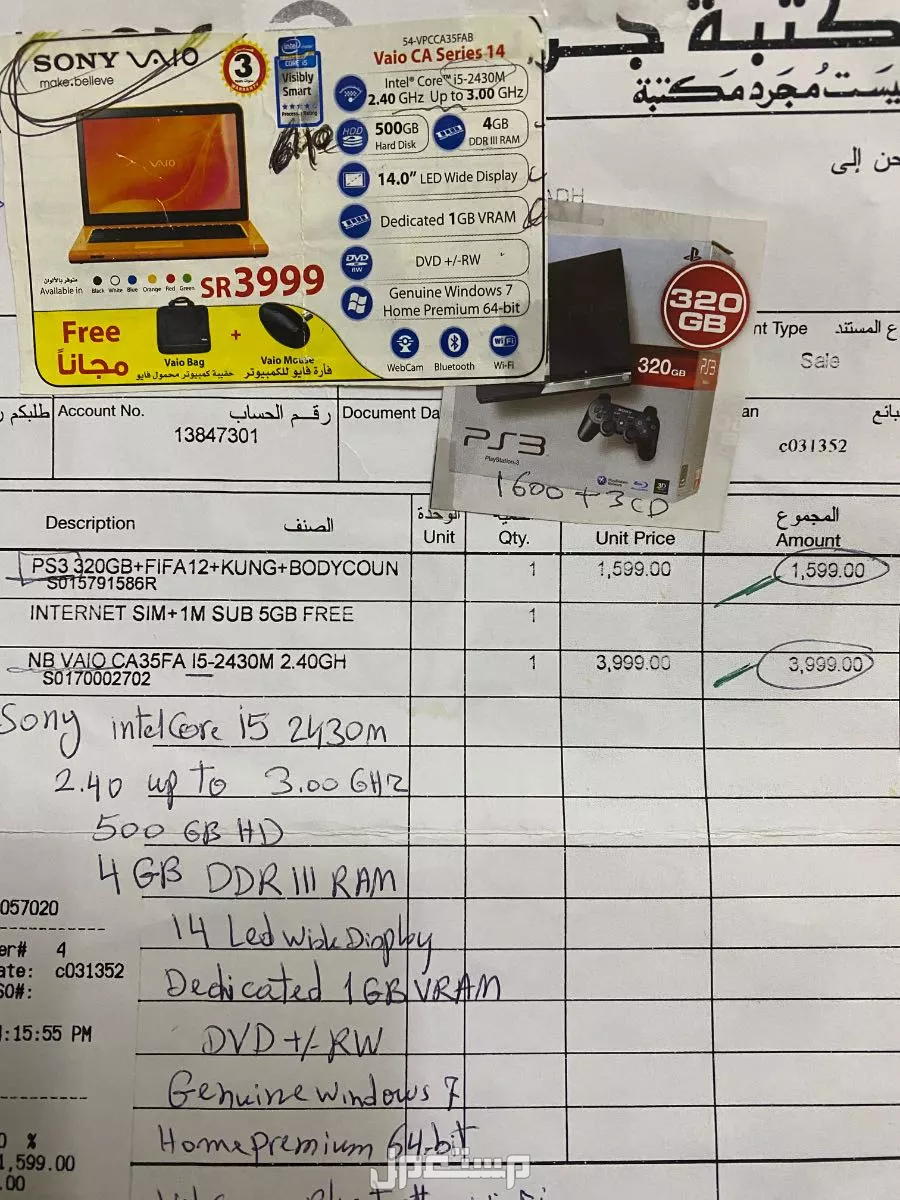 SONY VAIO
make.believe
3
intel
CORE i5
Visibly
Smart
54-VPCCA35FAB
Vaio CA Series 14
Intel® Core™ i5-2430M
2.40 GHz Up to 3.00 GHz
HDD
500GB
Hard Disk
4GB
DDR III RAM
14.0” LED Wide Display
Dedicated 1GB VRAM
DVD
RW
DVD +/-RW
Genuine Windows 7
Home Premium 64-bit
WebCam
Bluetooth
WiFi
Wi-Fi
VAIO
متوفر بالألوان
Available in
Black White Blue Orange Red Green
SR3999
Free
مجاناً
Vaio Bag
حقيبة كمبيوتر محمول فايو
+
Vaio Mouse
فأرة فايو للكمبيوتر
كتبة جر
يست مُجَرد مَكتبة
حن إلى
320
GB
320GB
PS3
PS3
PlayStation.3
SONY
1600 + 3CD
nt Type ع المستند
Sale
طلبكم ر
Account No. رقم الحساب
13847301
Document Da
an بائع
c031352
Description الصنف
الوحدة
Unit
Qty.
Unit Price
المجموع
Amount
PS3 320GB+FIFA12+KUNG+BODYCOUN 1 1,599.00 1,599.00
S015791586R
INTERNET SIM+1M SUB 5GB FREE 1
NB VAIO CA35FA I5-2430M 2.40GH 1 3,999.00 3,999.00
S0170002702
Sony intel Core i5 2430m
2.40 up to 3.00 GHz
500 GB HD
4 GB DDR III RAM
14 Led Wide Display
Dedicated 1GB VRAM
DVD +/- RW
Genuine windows 7
Home premium 64-bit
057020
er# 4
ate: c031352
SO#:
:15:55 PM
0 %
1,599.00
.00
مستعمل